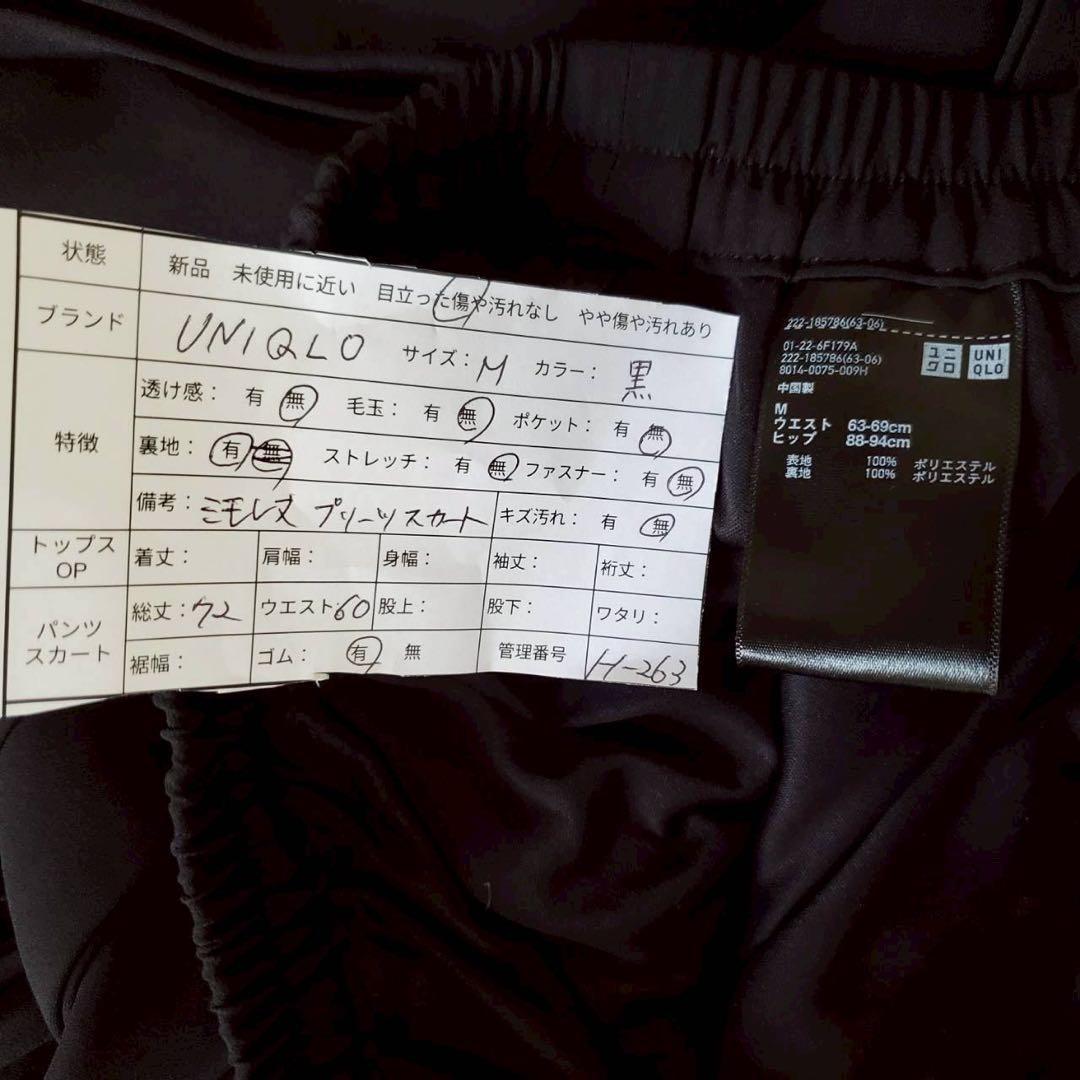 状態 新品 未使用に近い 目立った傷や汚れなし やや傷や汚れあり
ブランド UNIQLO サイズ: M カラー: 黒
特徴
透け感: 有 無 毛玉: 有 無 ポケット: 有 無
裏地: 有 無 ストレッチ: 有 無 ファスナー: 有 無
備考: ミモレ丈 プリーツスカート キズ汚れ: 有 無
トップス OP 着丈: 肩幅: 身幅: 袖丈: 裄丈:
パンツ スカート
総丈: 72 ウエスト: 60 股上: 股下: ワタリ:
裾幅: ゴム: 有 無 管理番号 H-263
222-185786(63-06)
01-22-6F179A
222-185786(63-06)
8014-0075-009H
ユニクロ UNIQLO
中国製
M
ウエスト 63-69cm
ヒップ 88-94cm
表地 100% ポリエステル
裏地 100% ポリエステル